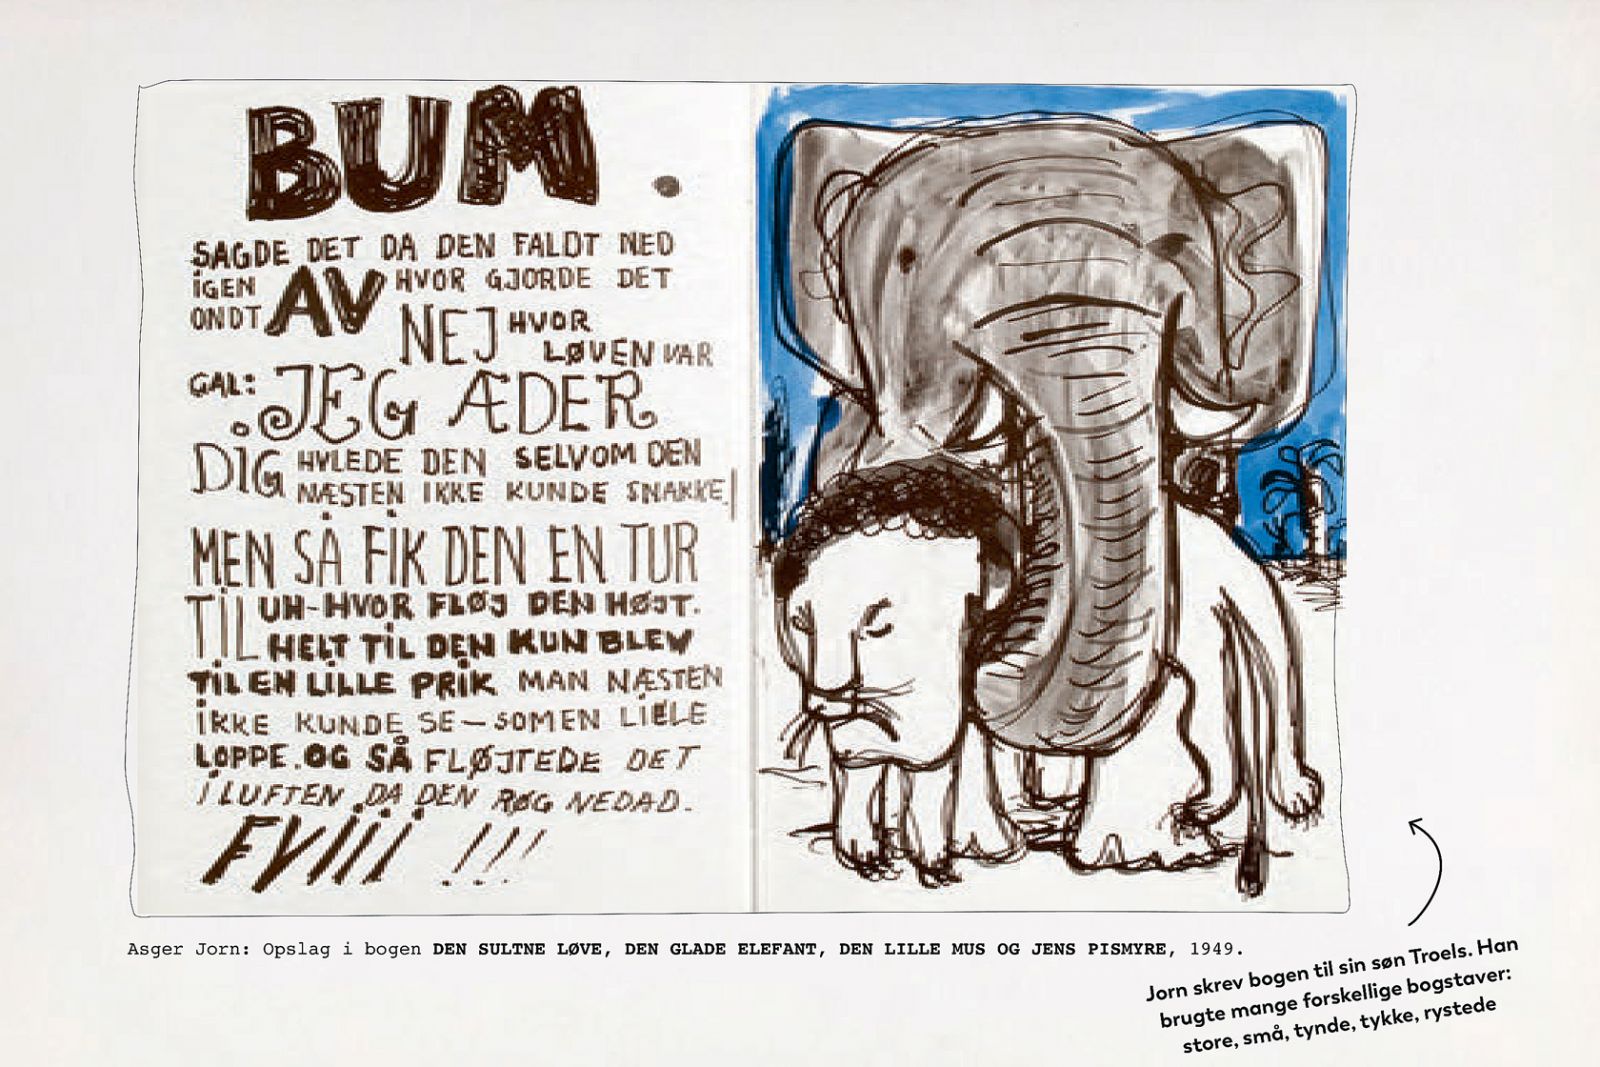 BUM.
SAGDE DET DA DEN FALDT NED
IGEN AV HVOR GJORDE DET
ONDT NEJ HVOR
LØVEN VAR
GAL: JEG ÆDER
DIG HYLEDE DEN SELVOM DEN
NÆSTEN IKKE KUNDE SNAKKE
MEN SÅ FIK DEN EN TUR
TIL UH-HVOR FLØJ DEN HØJT.
HELT TIL DEN KUN BLEV
TIL EN LILLE PRIK MAN NÆSTEN
IKKE KUNDE SE - SOM EN LILLE
LOPPE. OG SÅ FLØJTEDE DET
I LUFTEN DA DEN RØG NEDAD.
FYIII !!!
Asger Jorn: Opslag i bogen DEN SULTNE LØVE, DEN GLADE ELEFANT, DEN LILLE MUS OG JENS PISMYRE, 1949.
Jorn skrev bogen til sin søn Troels. Han
brugte mange forskellige bogstaver:
store, små, tynde, tykke, rystede